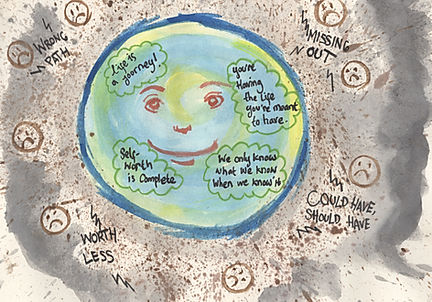 WRONG
PATH
MISSING
OUT
Life is
a journey!
you're
Having
the life
you're meant
to have.
Self-
Worth
is Complete
We only know
what we know
when we know it
COULD HAVE,
SHOULD HAVE
WORTH
LESS